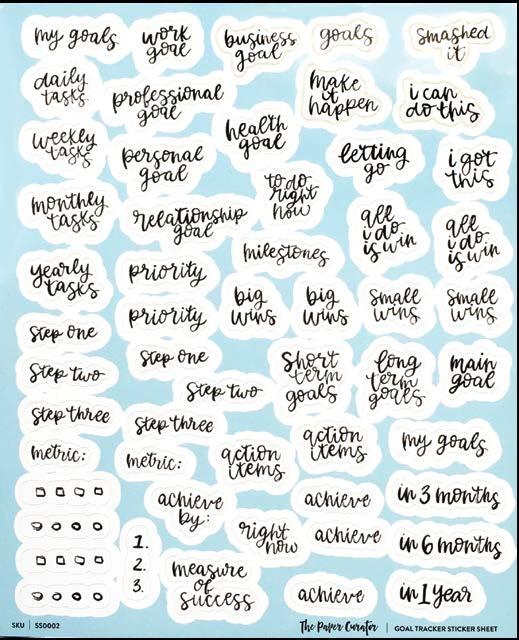 my goals
work
goal
business
goal
goals
smashed
it
daily
tasks
professional
goal
make
it
happen
i can
do this
weekly
tasks
personal
goal
health
goal
letting
go
i got
this
monthly
tasks
relationship
goal
to do
right
now
all
i do
is win
all
i do
is win
milestones
yearly
tasks
priority
priority
big
wins
big
wins
small
wins
small
wins
step one
step two
step three
step one
step two
step three
short
term
goals
long
term
goals
main
goal
metric:
metric:
action
items
action
items
my goals
achieve
by:
achieve
in 3 months
right
now
achieve
in 6 months
1.
2.
3.
measure
of
success
achieve
in 1 year
SKU | SS0002
The Paper Curator | GOAL TRACKER STICKER SHEET